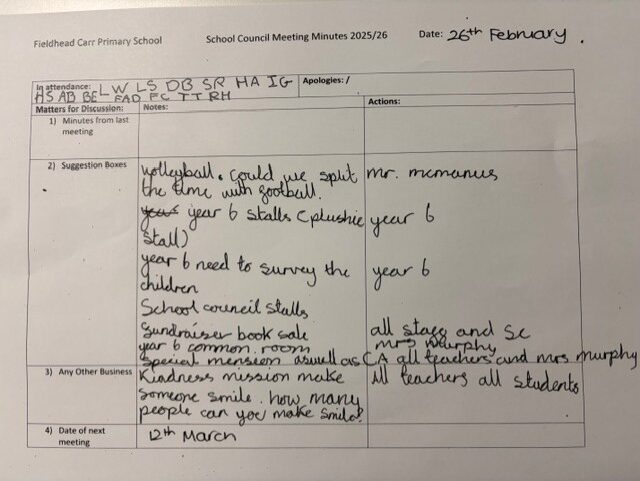 Fieldhead Carr Primary School School Council Meeting Minutes 2025/26 Date: 26th February.
In attendance: LW LS DB SR HA IG Apologies: /
HS AB BE EAD FC TT RH
Matters for Discussion: Notes: Actions:
1) Minutes from last
meeting
2) Suggestion Boxes
volleyball. could we split mr. mcmanus
the time with football.
year 6 stalls (plushie year 6
stall)
year 6 need to survey the year 6
children
School council stalls
fundraiser book sale all staff and SC
year 6 common room mrs murphy
special mension aswell as CA all teachers and mrs murphy
3) Any Other Business
Kindness mission make all teachers all students
someone smile. how many
people can you make smile?
4) Date of next
meeting
12th March